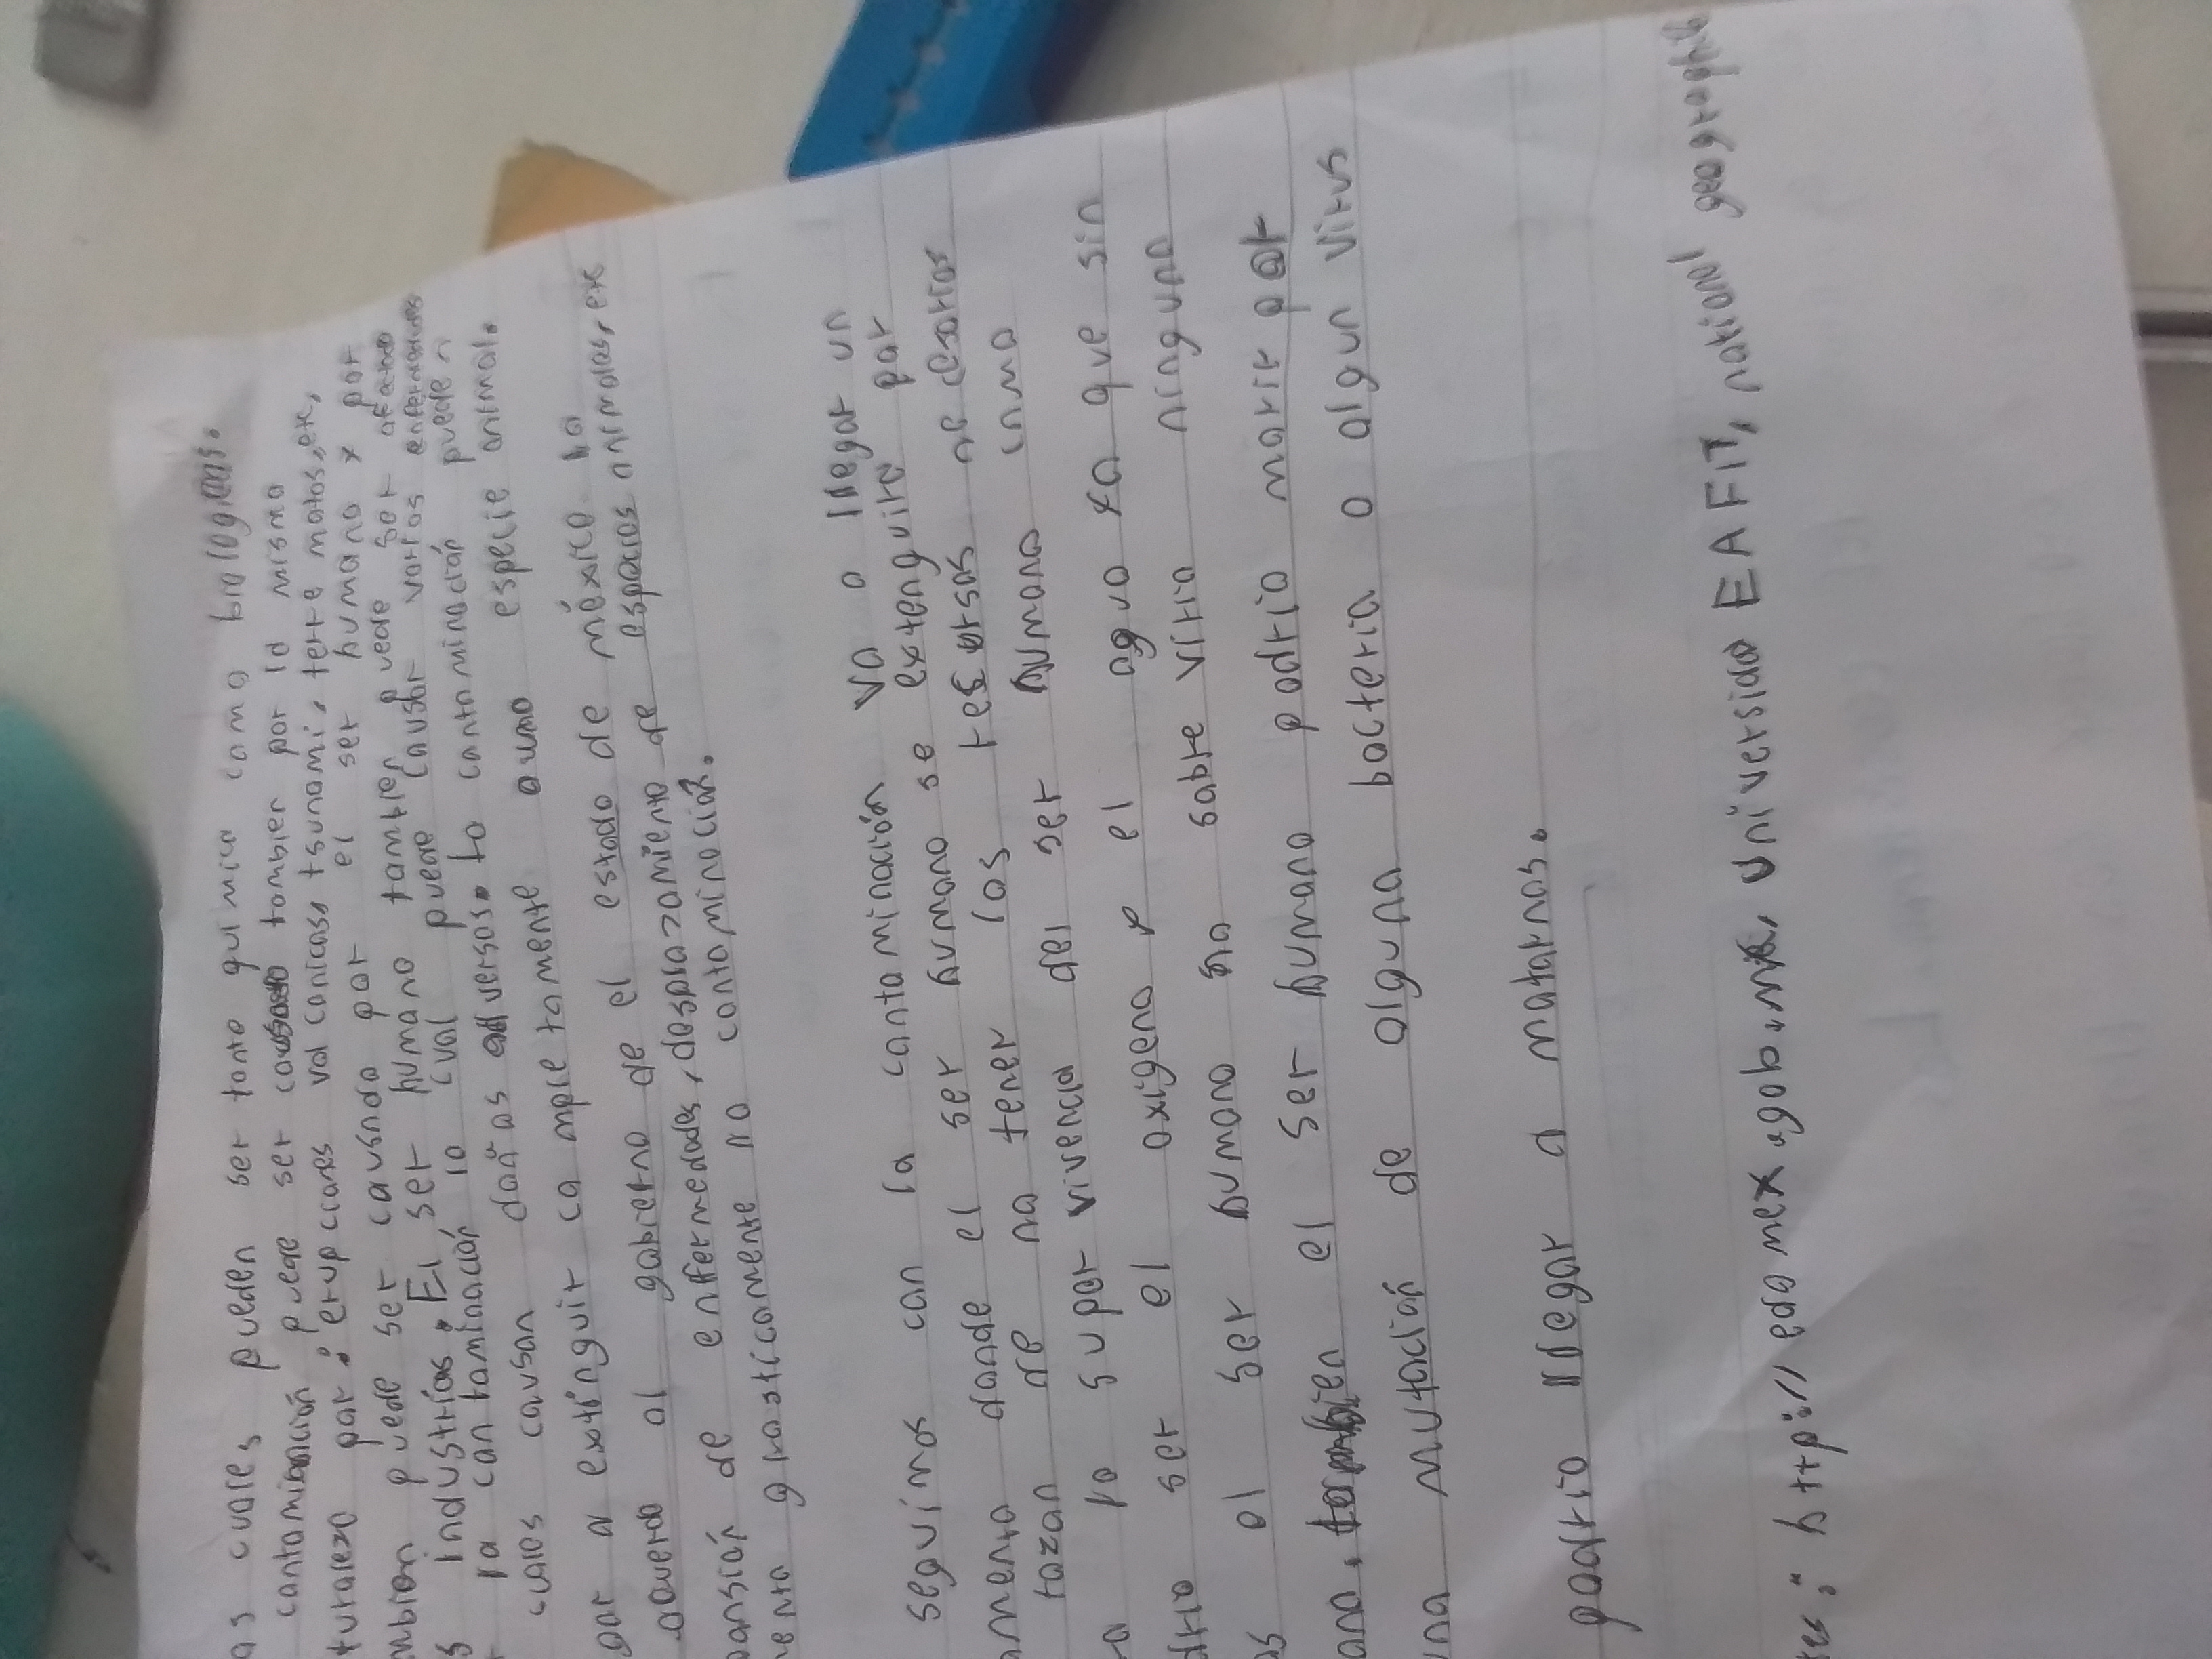 as cuales pueden ser tanto quimica como biologicas.
contaminación puede ser causado tambien por la misma
turaleza por: erupcciones volcanicas, tsunami, terre motos, etc,
mbien puede ser causado por el ser humano x por
s industrias. El ser humano tambien puede ser
r la contaminación lo cual puede causar varias enfermedades
cuales causan daños adversos. la contaminación puede
gar a extinguir completamente auna especie animal.
acuerdo al gobierno de el estado de méxico la
pansión de enfermedades, desplazamiento de espacios animales, etc
menta drasticamente la contaminación.
seguimos con la contaminación va a llegar un
omento donde el ser humano se extenguire por
razon de no tener los recursos necesarios
ra la super vivencia del ser humano como
dria ser el oxigeno y el agua ya que sin
as el ser humano no sabre viria ninguna
ana, el ser humano podria morir por
una mutación de alguna bacteria o algun virus
podria llegar a matarnos.
tes: http:// edomex.gob.mx, universida EAFIT, national geographic